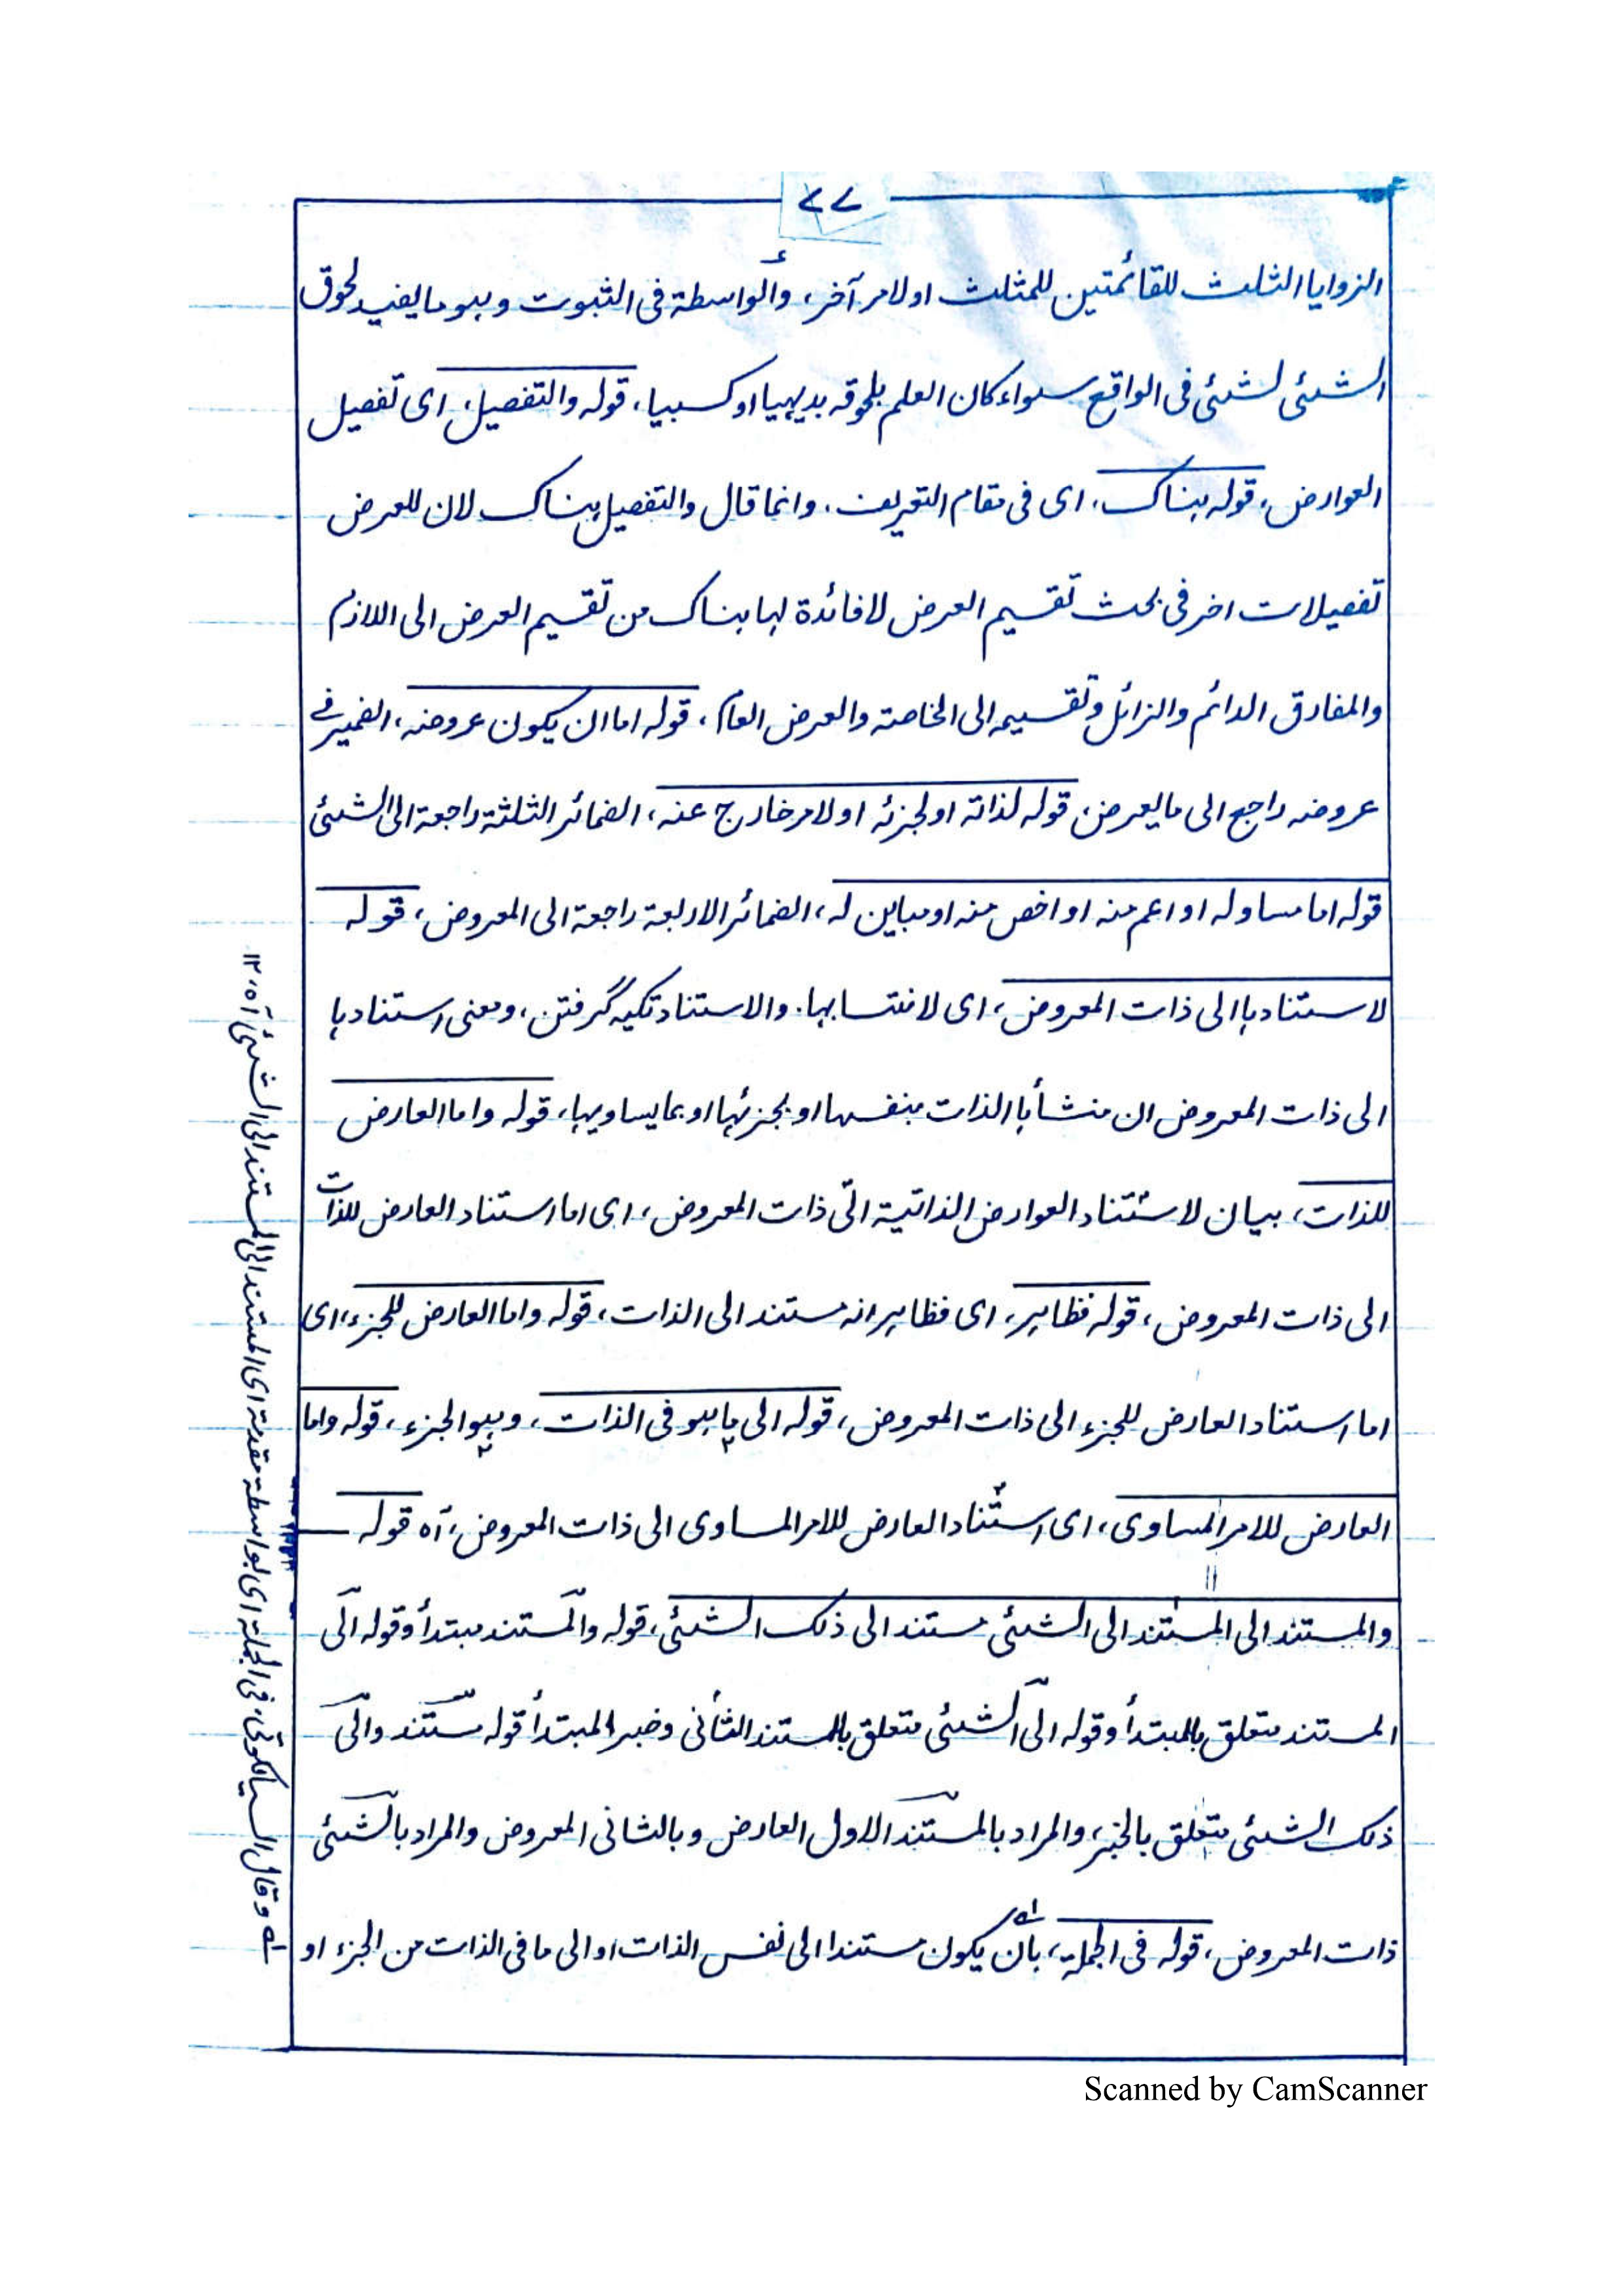 ۷۷
الزوايا الثلث للقائمتين للمثلث او لامر آخر، والواسطة فى الثبوت وهو ما يفيد لحوق
الشئى لشئى فى الواقع سواء كان العلم بلحوقه بديهيا او كسبيا، قوله والتفصيل، اى تفصيل
العوارض، قوله هناك، اى فى مقام التعريف، وانما قال والتفصيل هناك لان للعرض
تفصيلات اخر فى بحث تقسيم العرض لا فائدة لها هناك من تقسيم العرض الى اللازم
والمفارق الدائم والزائل وتقسيمه الى الخاصة والعرض العام، قوله اما ان يكون عروضه، الضمير فى
عروضه راجع الى ما يعرض، قوله لذاته او لجزئه او لامر خارج عنه، الضمائر الثلثة راجعة الى الشئى
قوله اما مساو له او اعم منه او اخص منه او مباين له، الضمائر الاربعة راجعة الى المعروض، قوله
لاستنادها الى ذات المعروض، اى لانتسابها. والاستناد تكيه گرفتن، ومعنى استنادها
الى ذات المعروض ان منشأها الذات بنفسها او بجزئها او بما يساويها، قوله واما العارض
للذات، بيان لاستناد العوارض الذاتية الى ذات المعروض، اى اما استناد العارض للذات
الى ذات المعروض، قوله فظاهر، اى فظاهر انه مستند الى الذات، قوله واما العارض للجزء، اى
اما استناد العارض للجزء الى ذات المعروض، قوله الى ما هو فى الذات، وهو الجزء، قوله واما
العارض للامر المساوى، اى استناد العارض للامر المساوى الى ذات المعروض، آه قوله
والمستند الى المستند الى الشئى مستند الى ذلك الشئى، قوله والمستند مبتدأ وقوله الى
المستند متعلق بالمبتدأ وقوله الى الشئى متعلق بالمستند الثانى وخبر المبتدأ قوله مستند والى
ذلك الشئى متعلق بالخبر، والمراد بالمستند الاول العارض وبالثانى المعروض والمراد بالشئى
ذات المعروض، قوله فى الجملة، بان يكون مستندا الى نفس الذات او الى ما فى الذات من الجزء او
وقال السيالكوتى، فى الجملة اى بواسطة مقدرة اى المستند الى المستند الى الشئى آه، ۱۲
Scanned by CamScanner